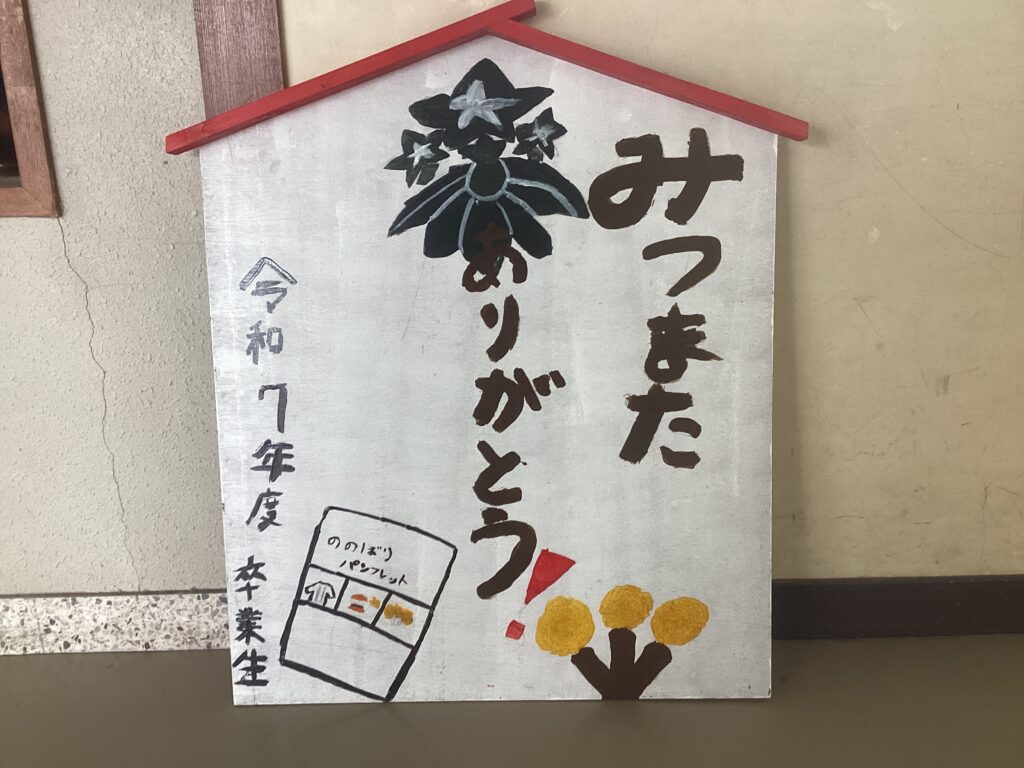 みつまた
ありがとう!
ののぼり
パンフレット
令和7年度 卒業生